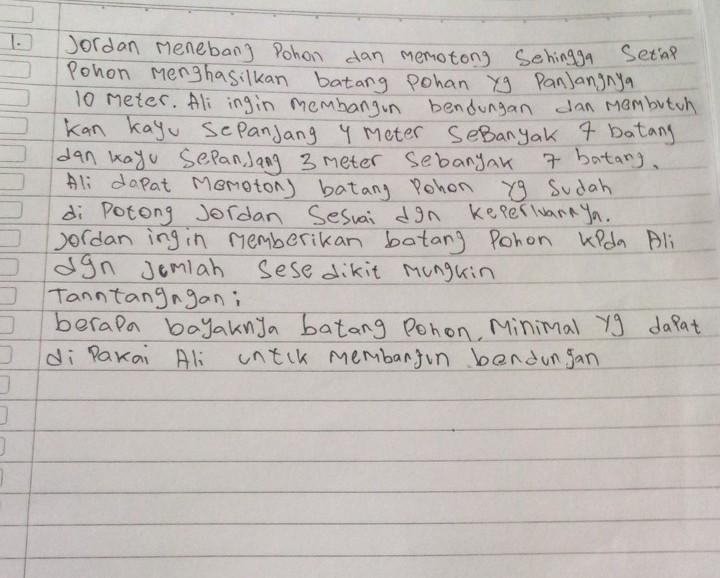 1. Jordan Menebang Pohon dan Memotong Sehingga Setiap
Pohon Menghasilkan batang Pohan yg Panjangnya
10 Meter. Ali ingin Membangun bendungan dan Mambutuh
kan kayu SePanjang 4 Meter SeBanyak 7 batang
dan kayu SePanjang 3 Meter Sebanyak 7 batang.
Ali dapat Memotong batang Pohon yg Sudah
di Potong Jordan Sesuai dgn KePerluannya.
Jordan ingin Memberikan batang Pohon kpda Ali
dgn jumlah Sese dikit Mungkin
Tanntangngan;
beraPa bayaknya batang Pohon, Minimal yg daPat
di Pakai Ali untuk Membangun bendungan